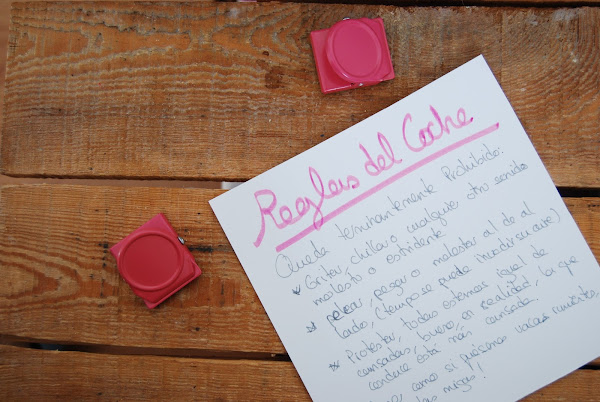 Reglas del Coche
Queda terminantemente Prohibido:
* Gritar, chillar o cualquier otro sonido
molesto o estridente
* pelear, pegar o molestar al de al
lado, (tampoco se puede invadir su aire)
* Protestar, todos estamos igual de
cansados, bueno, en realidad, la que
conduce está más cansada.
como si fuésemos vacas rumiantes,
las migas!